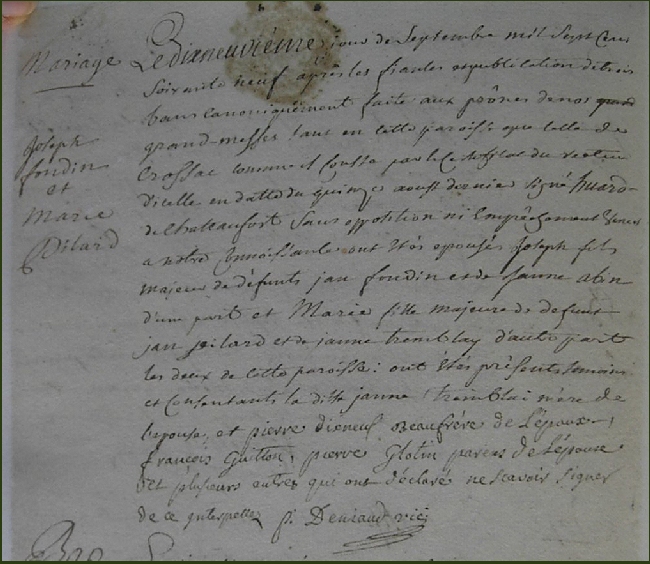 Mariage
Joseph
foudin
et
Marie
Pilard
Le dixneuvième jour de Septembre mil Sept Cens
Soixante neuf après les fiancles et publication de trois
bans canoniquement faite aux prônes de nos
grand-messes tant en cette paroisse que celle de
Crossac comme il Conste par le Certificat du recteur
d'icelle en datte du quinze aoust dernier signé huard
de Chattaufort Sans opposition ni Empêchement venus
a notre Connoissance ont étés épousés Joseph fils
majeur de défunts jan foudin et de janne abin
d'une part et Marie fille majeure de defunt
jan pilard et de janne tremblay d'autre part
les deux de cette paroisse: ont étés présents temoins
et Consentants la ditte janne tremblai mère de
l'epouse, et pierre dixneuf Beaufrére de L'époux,
françois Guitton, pierre Glotin parens de L'épouse
et plusieurs autres qui ont déclaré ne scavoir signer
de ce interpellez p. Deniaud vic: